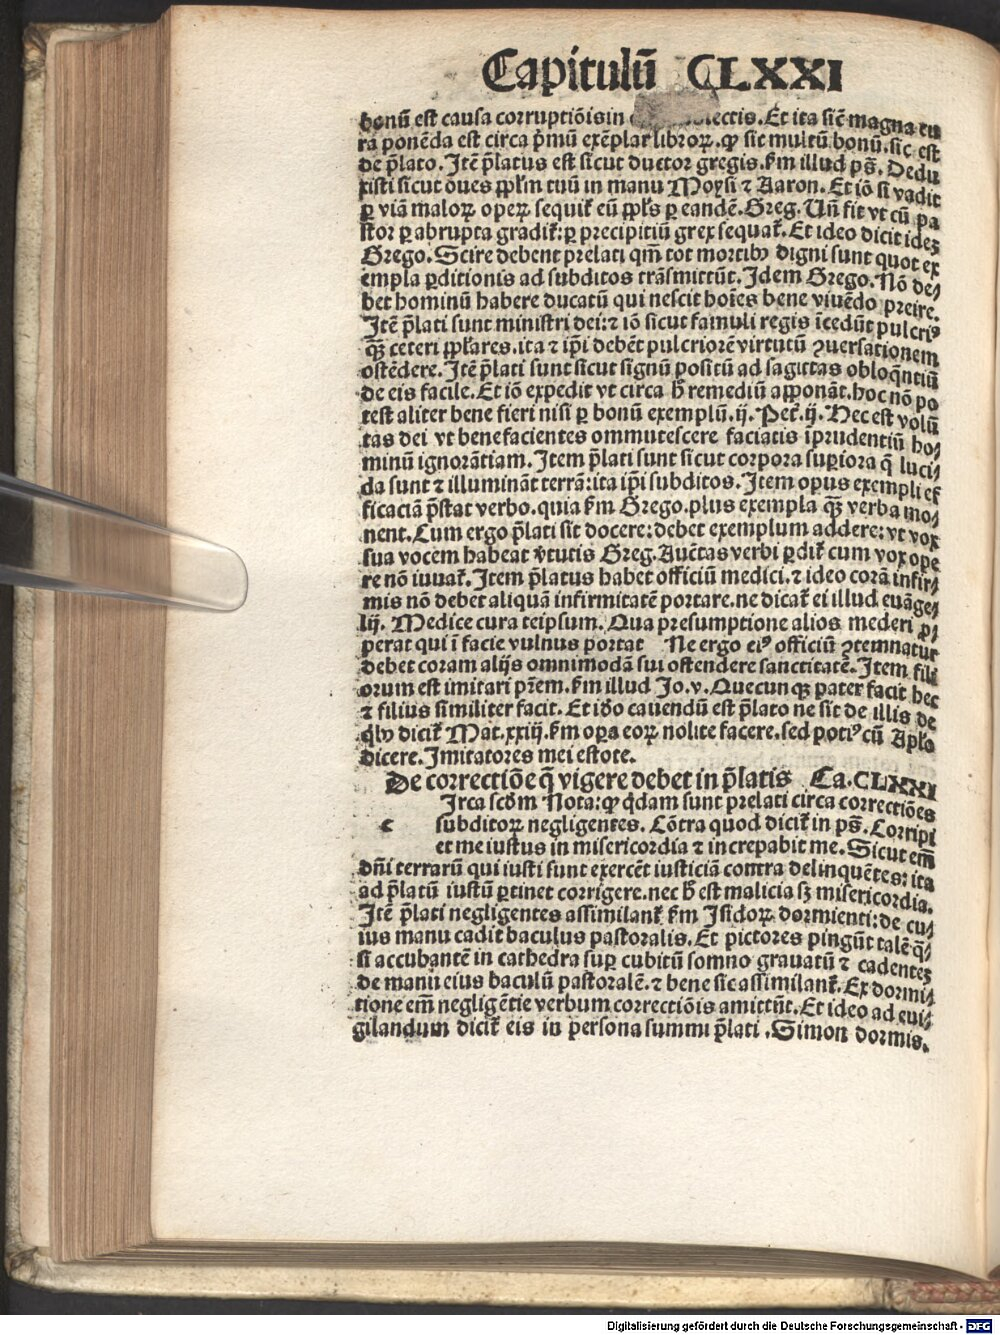 Capitulū CLXXI
bonū est causa corruptiōis in lectis. Et ita sic̄ magna cu
ra ponēda est circa p̄mū exēplar libroꝝ. ꝙ sit multū bonū. sic est
de p̄lato. Itē p̄latus est sicut ductor gregis. ẜm illud pš. Dedu
xisti sicut oues ppl̄m tuū in manu Moysi ⁊ Aaron. Et iō si vadit
ꝑ viā maloꝝ opeꝝ sequit̄ eū ppl̄s ꝑ eandē. Greg. Un̄ fit vt cū pa
stor ꝑ abrupta gradit̄: ꝑ precipitiū grex sequat̄. Et ideo dicit ideꝫ
Grego. Scire debent prelati qm̄ tot mortibꝰ digni sunt quot ex
empla ꝑditionis ad subditos trāsmittūt. Idem Grego. Nō de/
bet hominū habere ducatū qui nescit hoīes bene viuēdo preire.
Itē p̄lati sunt ministri dei: ⁊ iō sicut famuli regis īcedūt pulcriꝰ
qꝫ̄ ceteri ppl̄ares. ita ⁊ ip̄i debēt pulcriorē virtutū ꝯuersationem
ostēdere. Itē p̄lati sunt sicut signū positū ad sagittas obloqn̄tiū
de eis facile. Et iō expedit vt circa h̄ remediū apponāt. hoc nō po
test aliter bene fieri nisi ꝑ bonū exemplū. ij. Pet̄. ij. Hec est volū
tas dei vt benefacientes ommutescere faciatis īprudentiū ho/
minū ignorātiam. Item p̄lati sunt sicut corpora suꝑiora q̄ luci/
da sunt ⁊ illumināt terrā: ita ip̄i subditos. Item opus exempli ef
ficaciā p̄stat verbo. quia ẜm Grego. plus exempla qꝫ̄ verba mo/
nent. Cum ergo p̄lati sit docere: debet exemplum addere: vt vox
sua vocem habeat v̄tutis Greg. Auētas verbi ꝑdit̄ cum vox ope
re nō iuuat̄. Item p̄latus habet officiū medici. ⁊ ideo corā infir/
mis nō debet aliquā infirmitatē portare. ne dicat̄ ei illud euāge/
lij. Medice cura teipsum. Qua presumptione alios mederi ꝓ/
perat qui ī facie vulnus portat Ne ergo eiꝰ officiū ꝯtemnatur
debet coram alijs omnimodā sui ostendere sanctitatē. Item fili
orum est imitari pr̄em. ẜm illud Jo. v. Quecunqꝫ pater facit hec
⁊ filius similiter facit. Et iđo cauendū est p̄lato ne sit de illis de
qͥbꝰ dicit̄ Mat. xxiij. ẜm oꝑa eoꝝ nolite facere. sed potiꝰ cū Apl̄o
dicere. Imitatores mei estote.
De correctiōe q̄ vigere debet in p̄latis Ca. CLXXI
c Irca scđm Nota: ꝙ qͥdam sunt prelati circa correctiōes
subditoꝝ negligentes. Cōtra quod dicit̄ in pš. Corripi
et me iustus in misericordia ⁊ increpabit me. Sicut em̄
dn̄i terrarū qui iusti sunt exercēt iusticiā contra delinquētes: ita
ad p̄latū iustū ꝑtinet corrigere. nec h̄ est malicia sꝫ misericordia.
Itē p̄lati negligentes assimilant̄ ẜm Isidoꝝ dormienti: de cu/
ius manu cadit baculus pastoralis. Et pictores pingūt talē qͣ/
si accubantē in cathedra suꝑ cubitū somno grauatū ⁊ cadenteꝫ
de manu eius baculū pastoralē. ⁊ bene sic assimilant̄. Ex dormi/
tione em̄ negligētie verbum correctiōis amittūt. Et ideo ad eui/
gilandum dicit̄ eis in persona summi p̄lati. Simon dormis.
Digitalisierung gefördert durch die Deutsche Forschungsgemeinschaft - DFG